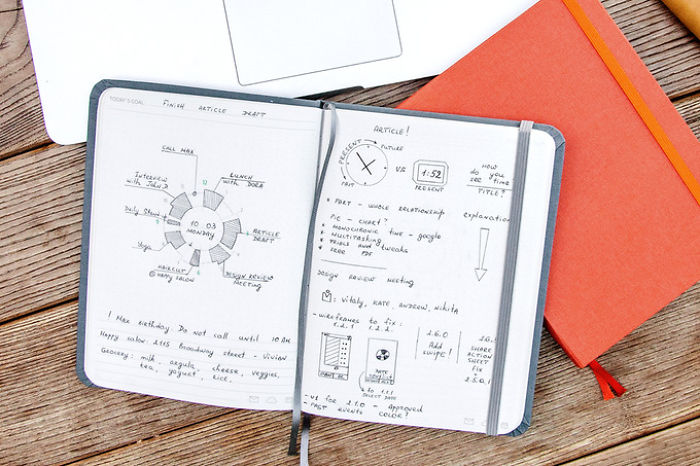 TODAY'S GOAL: FINISH ARTICLE DRAFT
CALL MAX
INTERVIEW
with JOHN D
LUNCH
with DORA
12
Daily Stand
9
10 03
MONDAY
ARTICLE
DRAFT
Yoga
HAIRCUT
@ HAPPY SALON
6
DESIGN REVIEW
MEETING
! Max birthday. Do not call until 10 AM
Happy salon: 2115 Broadway street - Vivian
Grocery: milk, arugula, cheese, veggies,
tea, yogurt, rice.
ARTICLE!
PRESENT
FUTURE
PAST
VS
1:52
PRESENT
HOW
do you
see time
TITLE?
* PART - WHOLE RELATIONSHIP
PIE - CHART?
* MONOCHRONIC TIME - google
* MULTITASKING
* TRIALS AND tweaks
* FREE PDF
explanation
DESIGN REVIEW MEETING
: Vitaly, KATE, ANDREW, NIKITA
- WIREFRAMES TO FIX:
1.2.1 1.2.2.
1.6.0
Add
swipe!
SHARE
ACTION
SHEET
FIX
1.5.0.1
SELECT DATE
- V1 FOR 1.1.0 - APPROVED
- PAST EVENTS COLOR?